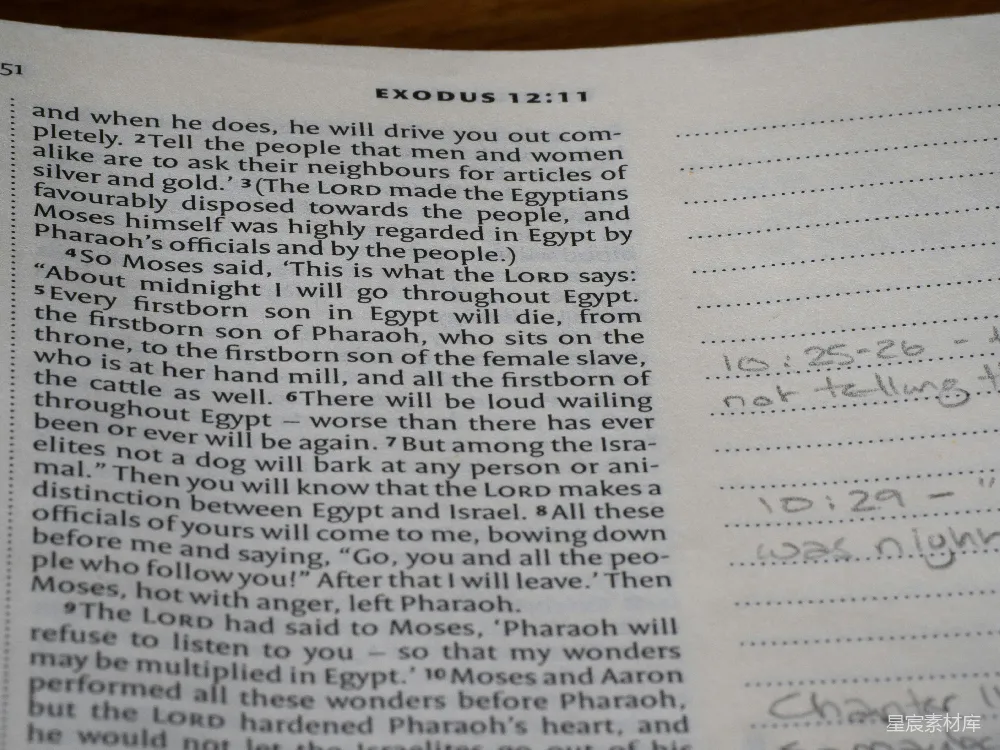 51
EXODUS 12:11
and when he does, he will drive you out com-
pletely. 2Tell the people that men and women
alike are to ask their neighbours for articles of
silver and gold.’ 3(The LORD made the Egyptians
favourably disposed towards the people, and
Moses himself was highly regarded in Egypt by
Pharaoh’s officials and by the people.)
4So Moses said, ‘This is what the LORD says:
“About midnight I will go throughout Egypt.
5Every firstborn son in Egypt will die, from
the firstborn son of Pharaoh, who sits on the
throne, to the firstborn son of the female slave,
who is at her hand mill, and all the firstborn of
the cattle as well. 6There will be loud wailing
throughout Egypt – worse than there has ever
been or ever will be again. 7But among the Isra-
elites not a dog will bark at any person or ani-
mal.” Then you will know that the LORD makes a
distinction between Egypt and Israel. 8All these
officials of yours will come to me, bowing down
before me and saying, “Go, you and all the peo-
ple who follow you!” After that I will leave.’ Then
Moses, hot with anger, left Pharaoh.
9The LORD had said to Moses, ‘Pharaoh will
refuse to listen to you – so that my wonders
may be multiplied in Egypt.’ 10Moses and Aaron
performed all these wonders before Pharaoh,
but the LORD hardened Pharaoh’s heart, and
he would not let the Israelites go out of his
10:25-26 -
not telling
10:29 - "
was
Chapter
星宸素材库